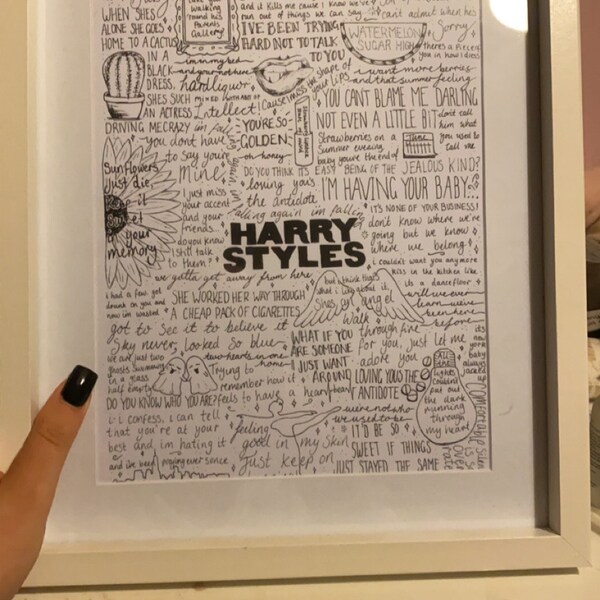 and it kills me cause I know we've
run out of things we can say
can't admit when he's
Sorry
WHEN SHE'S
ALONE SHE GOES
HOME TO A CACTUS
walking
'round his
Parents
Gallery
I'VE BEEN TRYING
HARD NOT TO TALK
TO YOU
WATERMELON
SUGAR HIGH
there's a piece of
you in how i dress
IN A
BLACK
DRESS,
SHES SUCH
AN ACTRESS
im in my bed
and your not here
hard liquor
mixed with a bit of
Intellect
Cause i miss the shape of
your lips
i want more berries
and that summer feeling
YOU CANT BLAME ME DARLING
NOT EVEN A LITTLE BIT
dont call
him what
you used to
call me
DRIVING ME CRAZY
YOU'RE SO
GOLDEN
oh honey
Strawberries on a
Summer evening
baby you're the end of
June
you dont have
to say your
Mine,
DO YOU THINK IT'S EASY BEING OF THE JEALOUS KIND?
loving you's
the antidote
I'M HAVING YOUR BABY?..
IT'S NONE OF YOUR BUSINESS!
Sunflowers
just die
keep it
Sweet
in your
memory
I just miss
your accent
and your
friends
do you know
I still talk
to them?
falling again im falling
HARRY
STYLES.
don't know where we're
going but we know
where we belong
i couldn't want you anymore
kiss in the kitchen like
its a dancefloor
we gotta get away from here
i had a few got
drunk on you and
now im wasted
SHE WORKED HER WAY THROUGH
A CHEAP PACK OF CIGARETTES
but i think that's
what i like about it
Shes an angel
will we ever
learn we've
been here
before
got to see it to believe it
Sky never looked so blue
WHAT IF YOU
ARE SOMEONE
I JUST WANT
AROUND
walk through fire
for you, just let me
adore you
LOVING YOU'S THE
ANTIDOTE
we are just two
ghosts Swimming
in a glass
half empty
two hearts in one
home
Trying to
remember how it
feels to have a heartbeat
DO YOU KNOW WHO YOU ARE
ALL THE
lights
couldn't
put out
the dark
running
through
my heart
i-i confess, i can tell
that you're at your
best and, im hating it
and ive been praying ever since
feeling
good in my Skin
Just keep on
we're not who
we used to be
IT'D BE SO
SWEET IF THINGS
JUST STAYED THE SAME